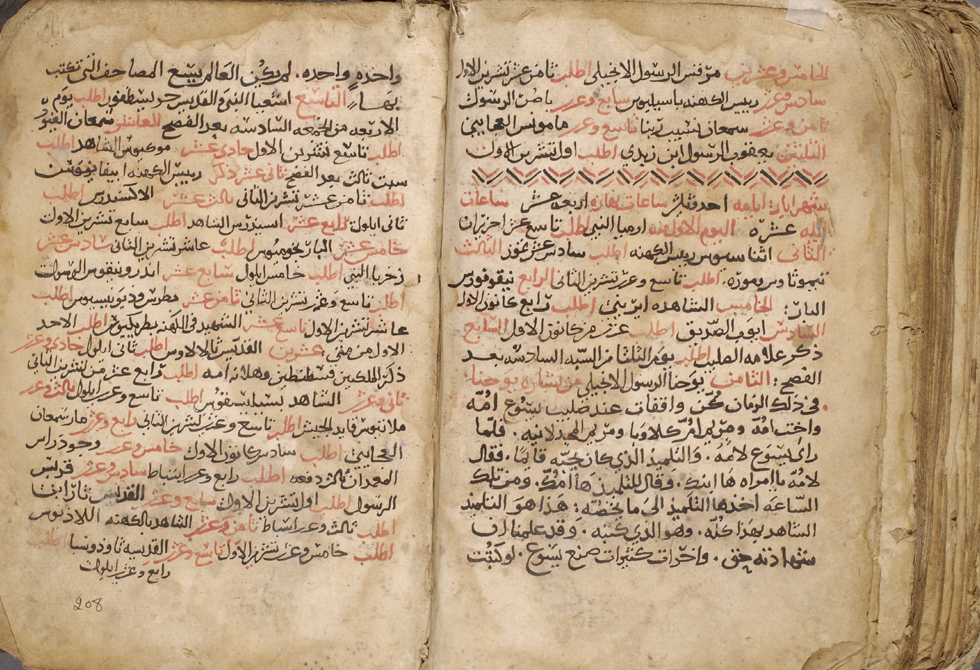 الخامس وعشرين مرقس الرسول الانجيلي اطلب ثامن عشر تشرين الاول
سادس وعشر رييس الكهنه باسيليوس سابع وعشر الرسول
ثامن وعشر سمعان نسيب ربنا تاسع وعشر مامونس العجايبي
الثلثين يعقوب الرسول ابن زبدي اطلب اول تشرين الاول
شهر ايار ايامه احد وثلثين ساعات نهاره اربعة عشر ساعات
ليله عشره اليوم الاول منه ارميا النبي اطلب تاسع عشر احزيران
الثاني اثناسيوس رييس الكهنه اطلب سادس عشر تموز الثالث
تيموثاوس وموره اطلب تاسع وعشر تشرين الثاني الرابع نيقوفورس
البان الخامس الشاهده ايريني اطلب رابع كانون الاول
السادس ايوب الصديق اطلب عشرين من كانون الاول السابع
ذكر علامه الصليب اطلب يوم الثلثا من السبه السادسه بعد
الفصح الثامن يوحنا الرسول الانجيلي من بشاره يوحنا
في ذلك الزمان كن واقفات عند صليب يسوع امه
واخت امه ومريم ام كلاوبا ومريم المجدلانيه. فلما
راى يسوع لامه. والتلميذ الذي كان يحبه قايما. فقال
لامه يا امراه ها ابنك. وقال للتلميذ ها امك. ومن تلك
الساعه اخذها التلميذ الى ما يخصه: هذا هو التلميذ
الشاهد بهذا كله. وهو الذي كتبه. وقد علمنا ان
شهادته حق. واخرات كثيرات صنع يسوع. لو كتبت
واحده واحده. لم يكن العالم يسع المصاحف التي تكتب
بها التاسع اشعيا النبي والقديس خرسطفورس اطلب يوم
الاربعه من الجمعه السادسه بعد الفصح العاشر سمعان الغيور
اطلب تاسع تشرين الاول حادي عشر موكيوس الشاهد اطلب
سبت ثالث بعد الفصح ثاني عشر ذكر رييس الكهنه ابيفانيوس
اطلب ثامن عشر تشرين الثاني ثالث عشر الاكسندرس اطلب
ثاني ايلول رابع عشر اسيدرس الشاهد اطلب سابع تشرين الاول
خامس عشر البار بخوميوس اطلب عاشر تشرين الثاني سادس عشر
زخريا النبي اطلب خامس ايلول سابع عشر اندرونيقوس الرسول
اطلب تاسع وعشر تشرين الثاني ثامن عشر بطرس وديونيسيوس اطلب
عاشر تشرين الاول تاسع عشر الشهيد في الكهنه بطريكيوس اطلب الاحد
الاول من متى عشرين القديس ثالالاوس اطلب ثاني ايلول حادي وعشر
ذكر الملكين قسطنطين وهلانه امه اطلب رابع عشر من تشرين الثاني
ثاني وعشر الشاهد باسيليسقوس اطلب تاسع وعشر ايلول ثالث وعشر
ملاتيوس قايد الجيش اطلب تاسع وعشر تشرين الثاني رابع وعشر مار سمعان
العجايبي اطلب سادس كانون الاول خامس وعشر وجود راس
المعمدان ثالث دفعه اطلب رابع وعشر اشباط سادس وعشر قربس
الرسول اطلب اول تشرين الاول سابع وعشر القديس
اطلب ثالث وعشر اشباط ثامن وعشر الشاهد بالكهنه اللاديوس
اطلب خامس وعشر تشرين الاول تاسع وعشر القديسه ثاودوسيا اطلب
رابع وعشر ايلول
208